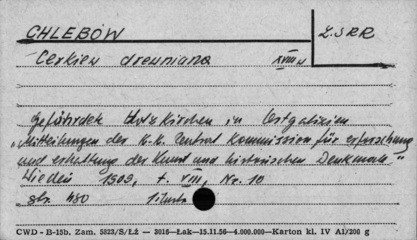 CHLEBÓW
Z.SRR
Cerkiew drewniana XVIII w
Gefährdete Holzkirchen in Ostgalizien
"Mitteilungen der K.K. Zentral Kommission für erforschung
und erhaltung der Kunst und historischen Denkmale"
Wiedeń 1909, t. VIII, Nr. 10
str. 480
CWD - B-15b. Zam. 5823/S/Łź — 3016—Łak—15.11.56—4.000.000—Karton kl. IV A1/200 g